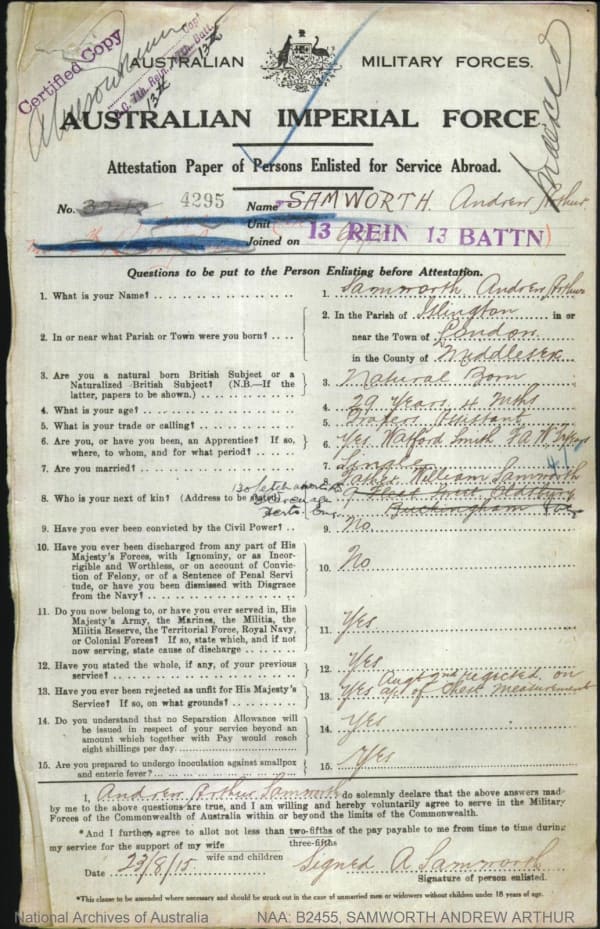 Certified Copy
AUSTRALIAN MILITARY FORCES.
AUSTRALIAN IMPERIAL FORCE
Attestation Paper of Persons Enlisted for Service Abroad.
No. 4295 Name SAMWORTH Andrew Arthur
Unit
Joined on
13 REIN 13 BATTN
Questions to be put to the Person Enlisting before Attestation.
1. What is your Name? 1. Samworth Andrew Arthur
2. In or near what Parish or Town were you born? 2. In the Parish of Islington in or
near the Town of London
in the County of Middlesex
3. Are you a natural born British Subject or a
Naturalized British Subject? (N.B.—If the
latter, papers to be shown.) 3. Natural Born
4. What is your age? 4. 29 Years 4 Mths
5. What is your trade or calling? 5. Drapers Assistant
6. Are you, or have you been, an Apprentice? If so,
where, to whom, and for what period? 6. Yes Watford Smith
7. Are you married? 7. Single
8. Who is your next of kin? (Address to be stated) 8. Father William Samworth
Herts. Eng.
Buckingham
9. Have you ever been convicted by the Civil Power? 9. No
10. Have you ever been discharged from any part of His
Majesty's Forces, with Ignominy, or as Incor-
rigible and Worthless, or on account of Convic-
tion of Felony, or of a Sentence of Penal Servi
tude, or have you been dismissed with Disgrace
from the Navy? 10. No
11. Do you now belong to, or have you ever served in, His
Majesty's Army, the Marines, the Militia, the
Militia Reserve, the Territorial Force, Royal Navy,
or Colonial Forces? If so, state which, and if not
now serving, state cause of discharge 11. Yes
12. Have you stated the whole, if any, of your previous
service? 12. Yes
13. Have you ever been rejected as unfit for His Majesty's
Service? If so, on what grounds? 13. Yes
rejected on
of chest measurement
14. Do you understand that no Separation Allowance will
be issued in respect of your service beyond an
amount which together with Pay would reach
eight shillings per day. 14. Yes
15. Are you prepared to undergo inoculation against smallpox
and enteric fever? 15. Yes
I, Andrew Arthur Samworth do solemnly declare that the above answers made
by me to the above questions are true, and I am willing and hereby voluntarily agree to serve in the Military
Forces of the Commonwealth of Australia within or beyond the limits of the Commonwealth.
*And I further agree to allot not less than two-fifths of the pay payable to me from time to time during
three-fifths
my service for the support of my wife
wife and children
Date 23/8/15 Signed A Samworth
Signature of person enlisted.
*This clause to be amended where necessary and should be struck out in the case of unmarried men or widowers without children under 18 years of age.
National Archives of Australia NAA: B2455, SAMWORTH ANDREW ARTHUR